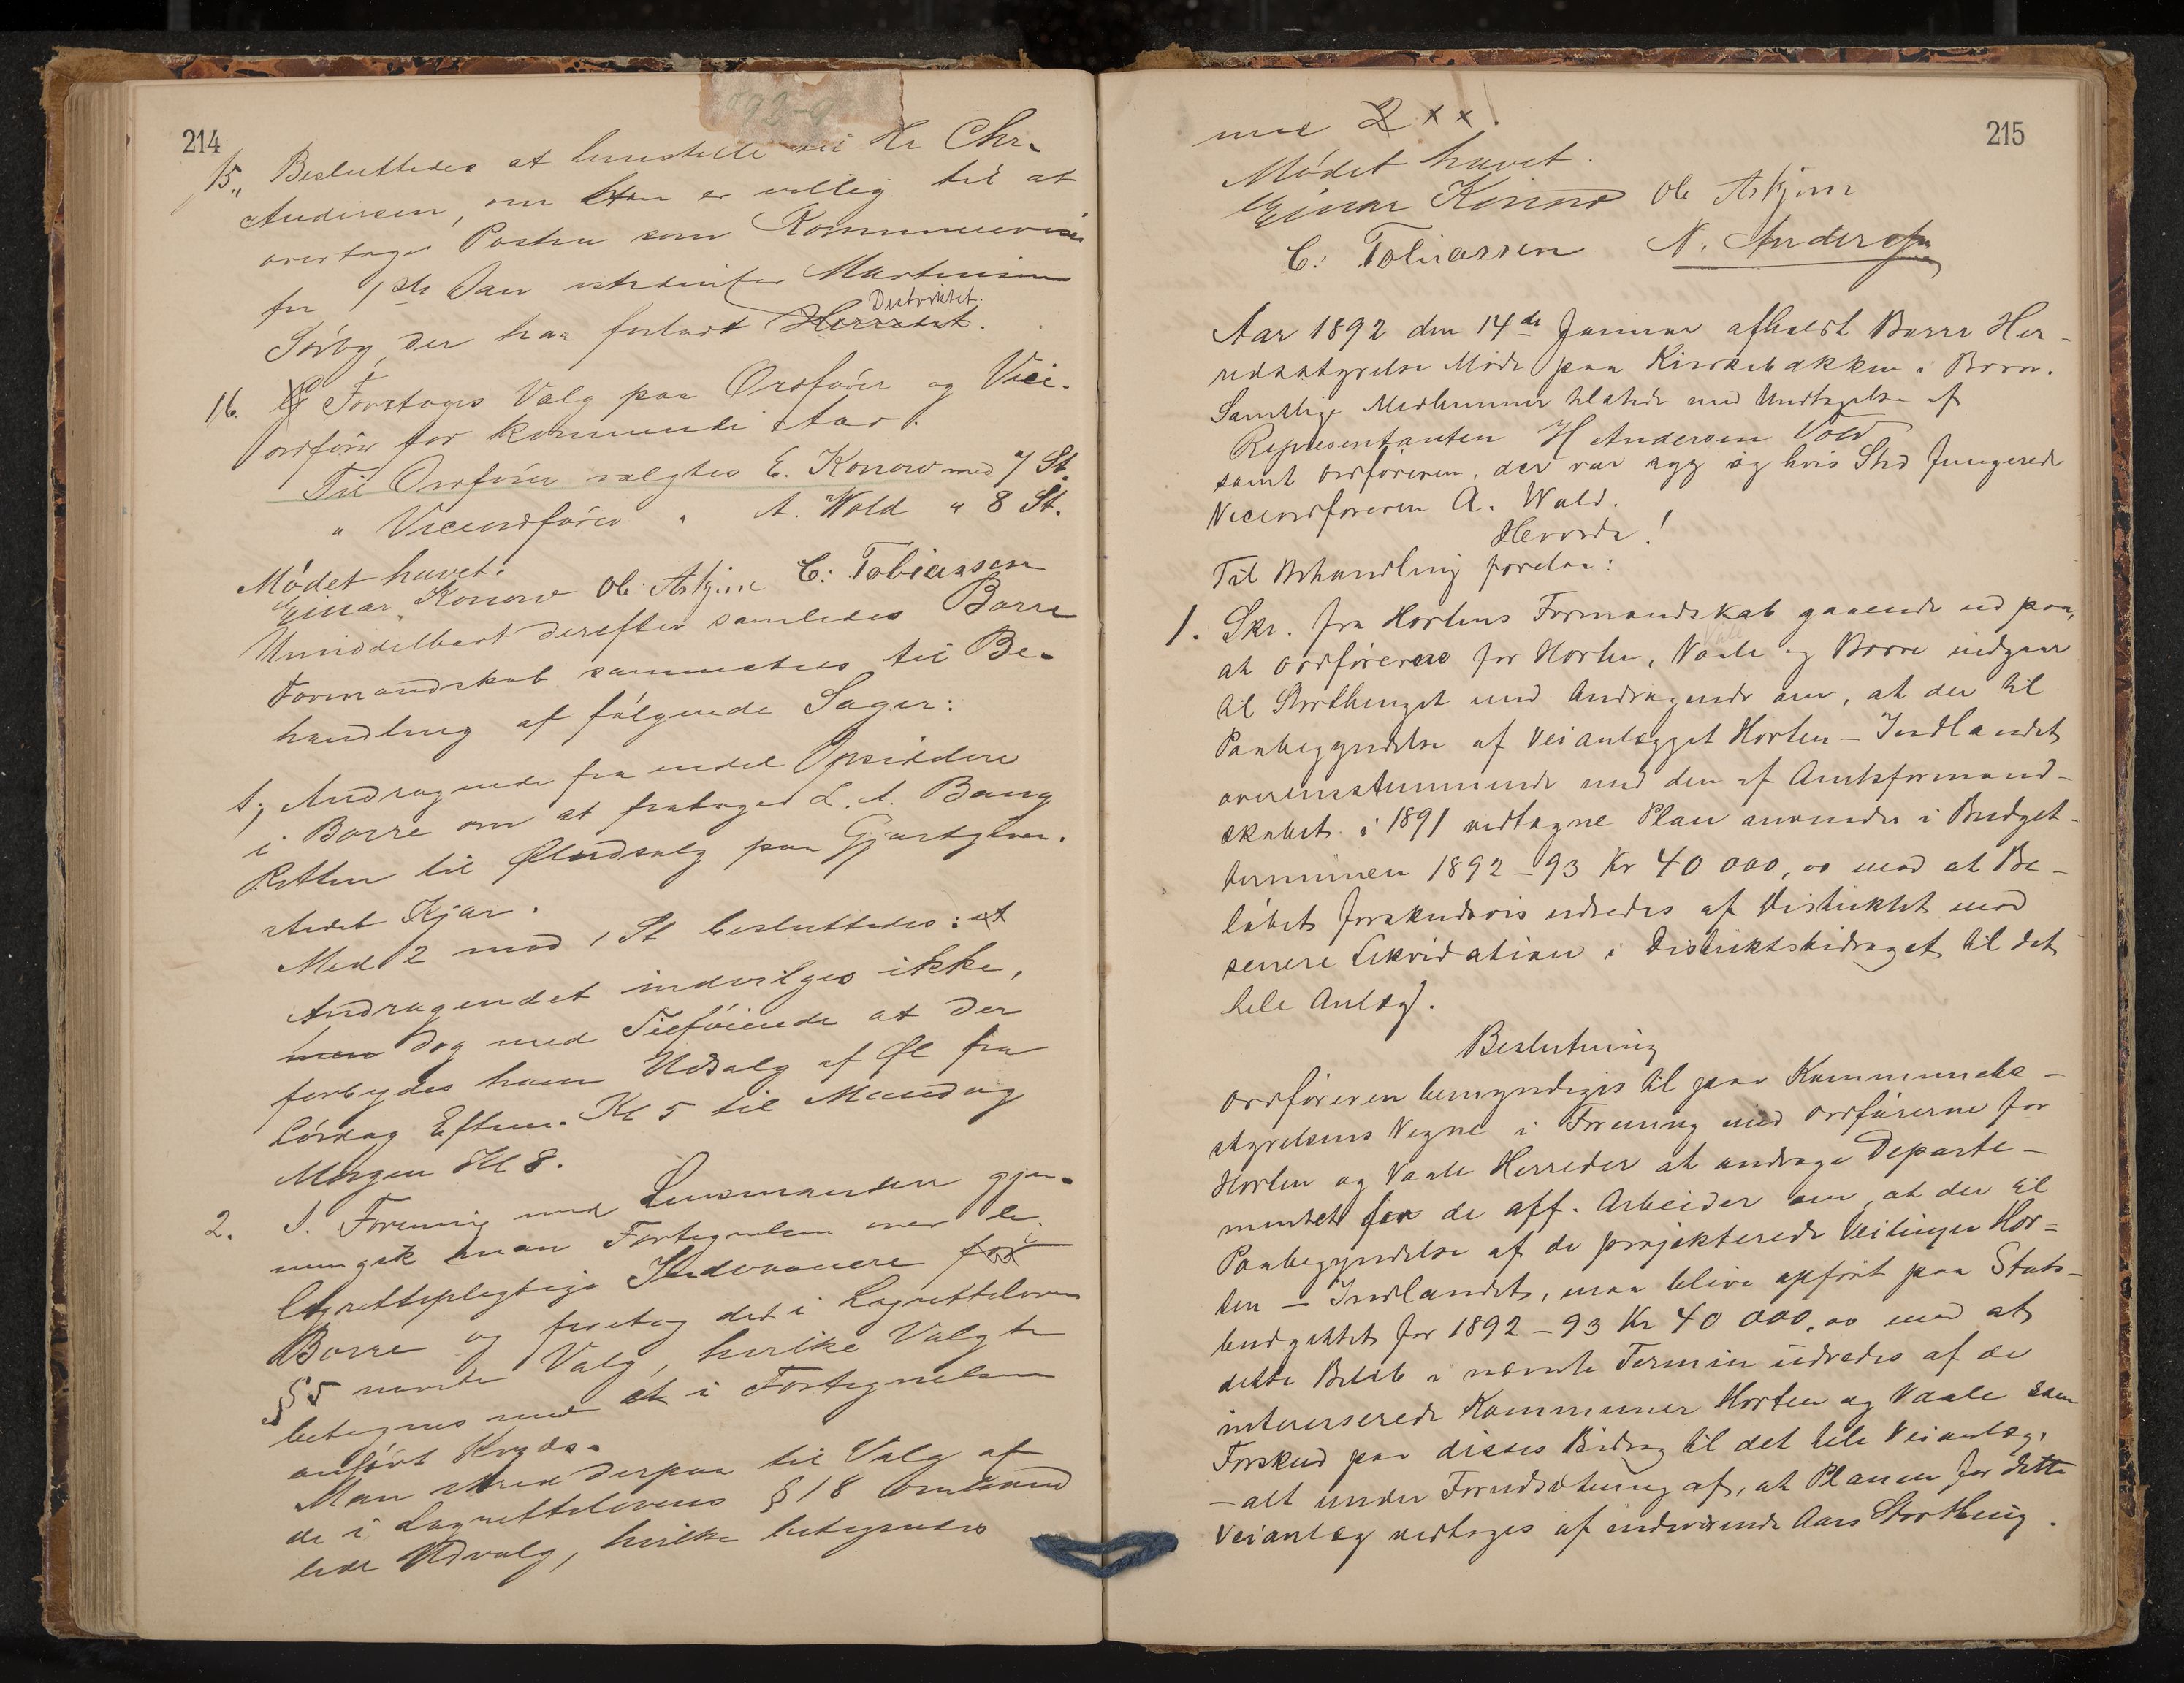 214
15,, Besluttedes at henstille til Hr Chr.
Andersen, om han er villig til at
overtage Posten som Kommunerevisor
fra 1ste Jan istedenfor Martinius
Distriktet.
Sørby, der har forladt Herredet.
16. Foretoges Valg paa Ordfører og Vice-
ordfører for kommende Aar.
Til Ordfører valgtes E. Konow med 7 St.
" Viceordfører " A. Wold " 8 St.
Mødet hævet.
Einar Konow Ole Askjem C: Tobiassen
Umiddelbart derefter samledes Borre
Formandskab sammesteds til Be-
handling af følgende Sager:
1, Andragende fra endel Opsiddere
i Borre om at fratages L. A. Bang
Retten til Øludsalg paa Gjæstgiver-
stedet Kjær.
Med 2 mod 1 St besluttedes: at
Andragendet indvilges ikke,
men dog med Tilføiende at der
forbydes ham Udsalg af Øl fra
Lørdag Efterm. Kl 5 til Mandag
Morgen Kl 8.
2. I Forening med Lensmanden gjen-
nemgik man Fortegnelsen over de
lagrettepligtige Indvaanere for i
Borre og foretog det i Lagretteloven
§ 5 nævnte Valg, hvilke Valgte
betegnes med et i Fortegnelsen
anført Kryds.
Man skred derpaa til Valg af
de i Lagrettelovens § 18 omhand
lede Udvalg, hvilke betegnedes
92-9
215
med 2 x x.
Mødet hævet.
Einar Konow Ole Askjem
C: Tobiassen N. Andersen
Aar 1892 den 14de Januar afholdt Borre Her-
redsstyrelse Møde paa Kirkebakken i Borre.
Samtlige Medlemmer tilstede med Undtagelse af
Representanten H Andersen Vold
samt Ordføreren, der var syg og hvis Sted fungerede
Viceordføreren A. Wold.
Hvorda!
Til Behandling forelaa:
1. Skr. fra Hortens Formandskab gaaende ud paa,
at Ordførerne for Horten, Vaale og Borre indgaar
til Storthinget med Andragende om, at der til
Paabegyndelse af Veianlægget Horten - Indlandet
overensstemmende med den af Amtsformand-
skabet i 1891 vedtagne Plan anvendes i Budget-
terminen 1892-93 Kr 40 000,00 mod at Be-
løbet forskudsvis udredes af Distriktet mod
senere Likvidation i Distriktsbidraget til det
hele Anlæg.
Beslutning
Ordføreren bemyndiges til paa Kommunebe-
styrelsens Vegne i Forening med Ordførerne for
Horten og Vaale Herreder at andrage Departe-
mentet for de off. Arbeider om, at der til
Paabegyndelse af de projekterede Veilinjer Hor-
ten - Indlandet, maa blive opført paa Stats-
budgettet for 1892-93 Kr 40 000,00 mod at
dette Beløb i nævnte Termin udredes af de
interesserede Kommuner Horten og Vaale som
Forskud paa disses Bidrag til det hele Veianlæg,
- alt under Forudsætning af, at Planen for dette
Veianlæg vedtages af indeværende Aars Storthing.